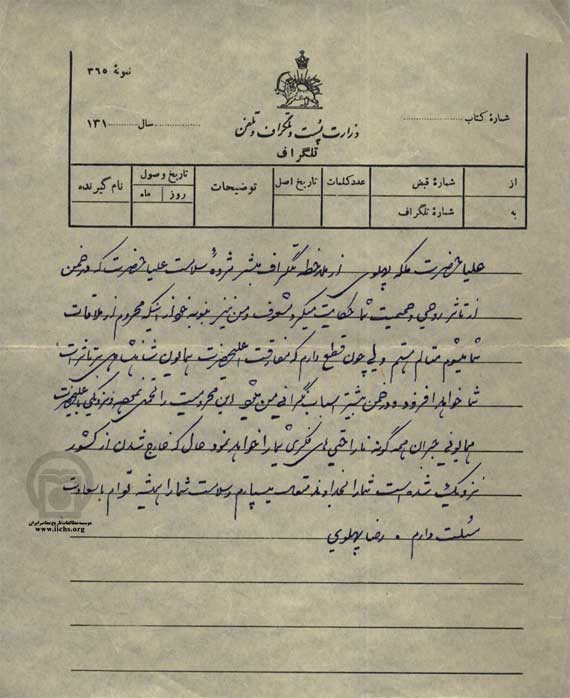 نمونهٔ ۳۶۵
شمارهٔ کتاب
سال ۱۳۱
وزارت پست و تلگراف و تلفن
تلگراف
از شمارهٔ قبض عدد کلمات تاریخ اصل توضیحات تاریخ وصول نام گیرنده
روز ماه
به شمارهٔ تلگراف
علیاحضرت ملکه پهلوی از ملاحظه تلگراف مبشر مژده سلامت علیاحضرت که در ضمن
از تأثر روحی و صمیمیت شما حکایت میکرد مشعوف و من نیز بنوبه خود از اینکه محروم از ملاقات
شما میشوم متألم هستم ولی چون قطع دارم که مفارقت اعلیحضرت همایون شاهنشاهی بر تأثرات
شما خواهد افزود و در ضمن بیشتر اسباب نگرانی من میشود این محرومیت را تحمل نموده نزدیکی با علیحضرت
همایونی جبران همه گونه ناراحتی های فکری شما را خواهد نمود حال که خارج شدن از کشور
نزدیک شده است شما را بخداوند متعال میسپارم و سلامت شما را همیشه توأم با سعادت
مسئلت دارم . رضا پهلوی
موسسه مطالعات تاریخ معاصر ایران
www.iichs.org